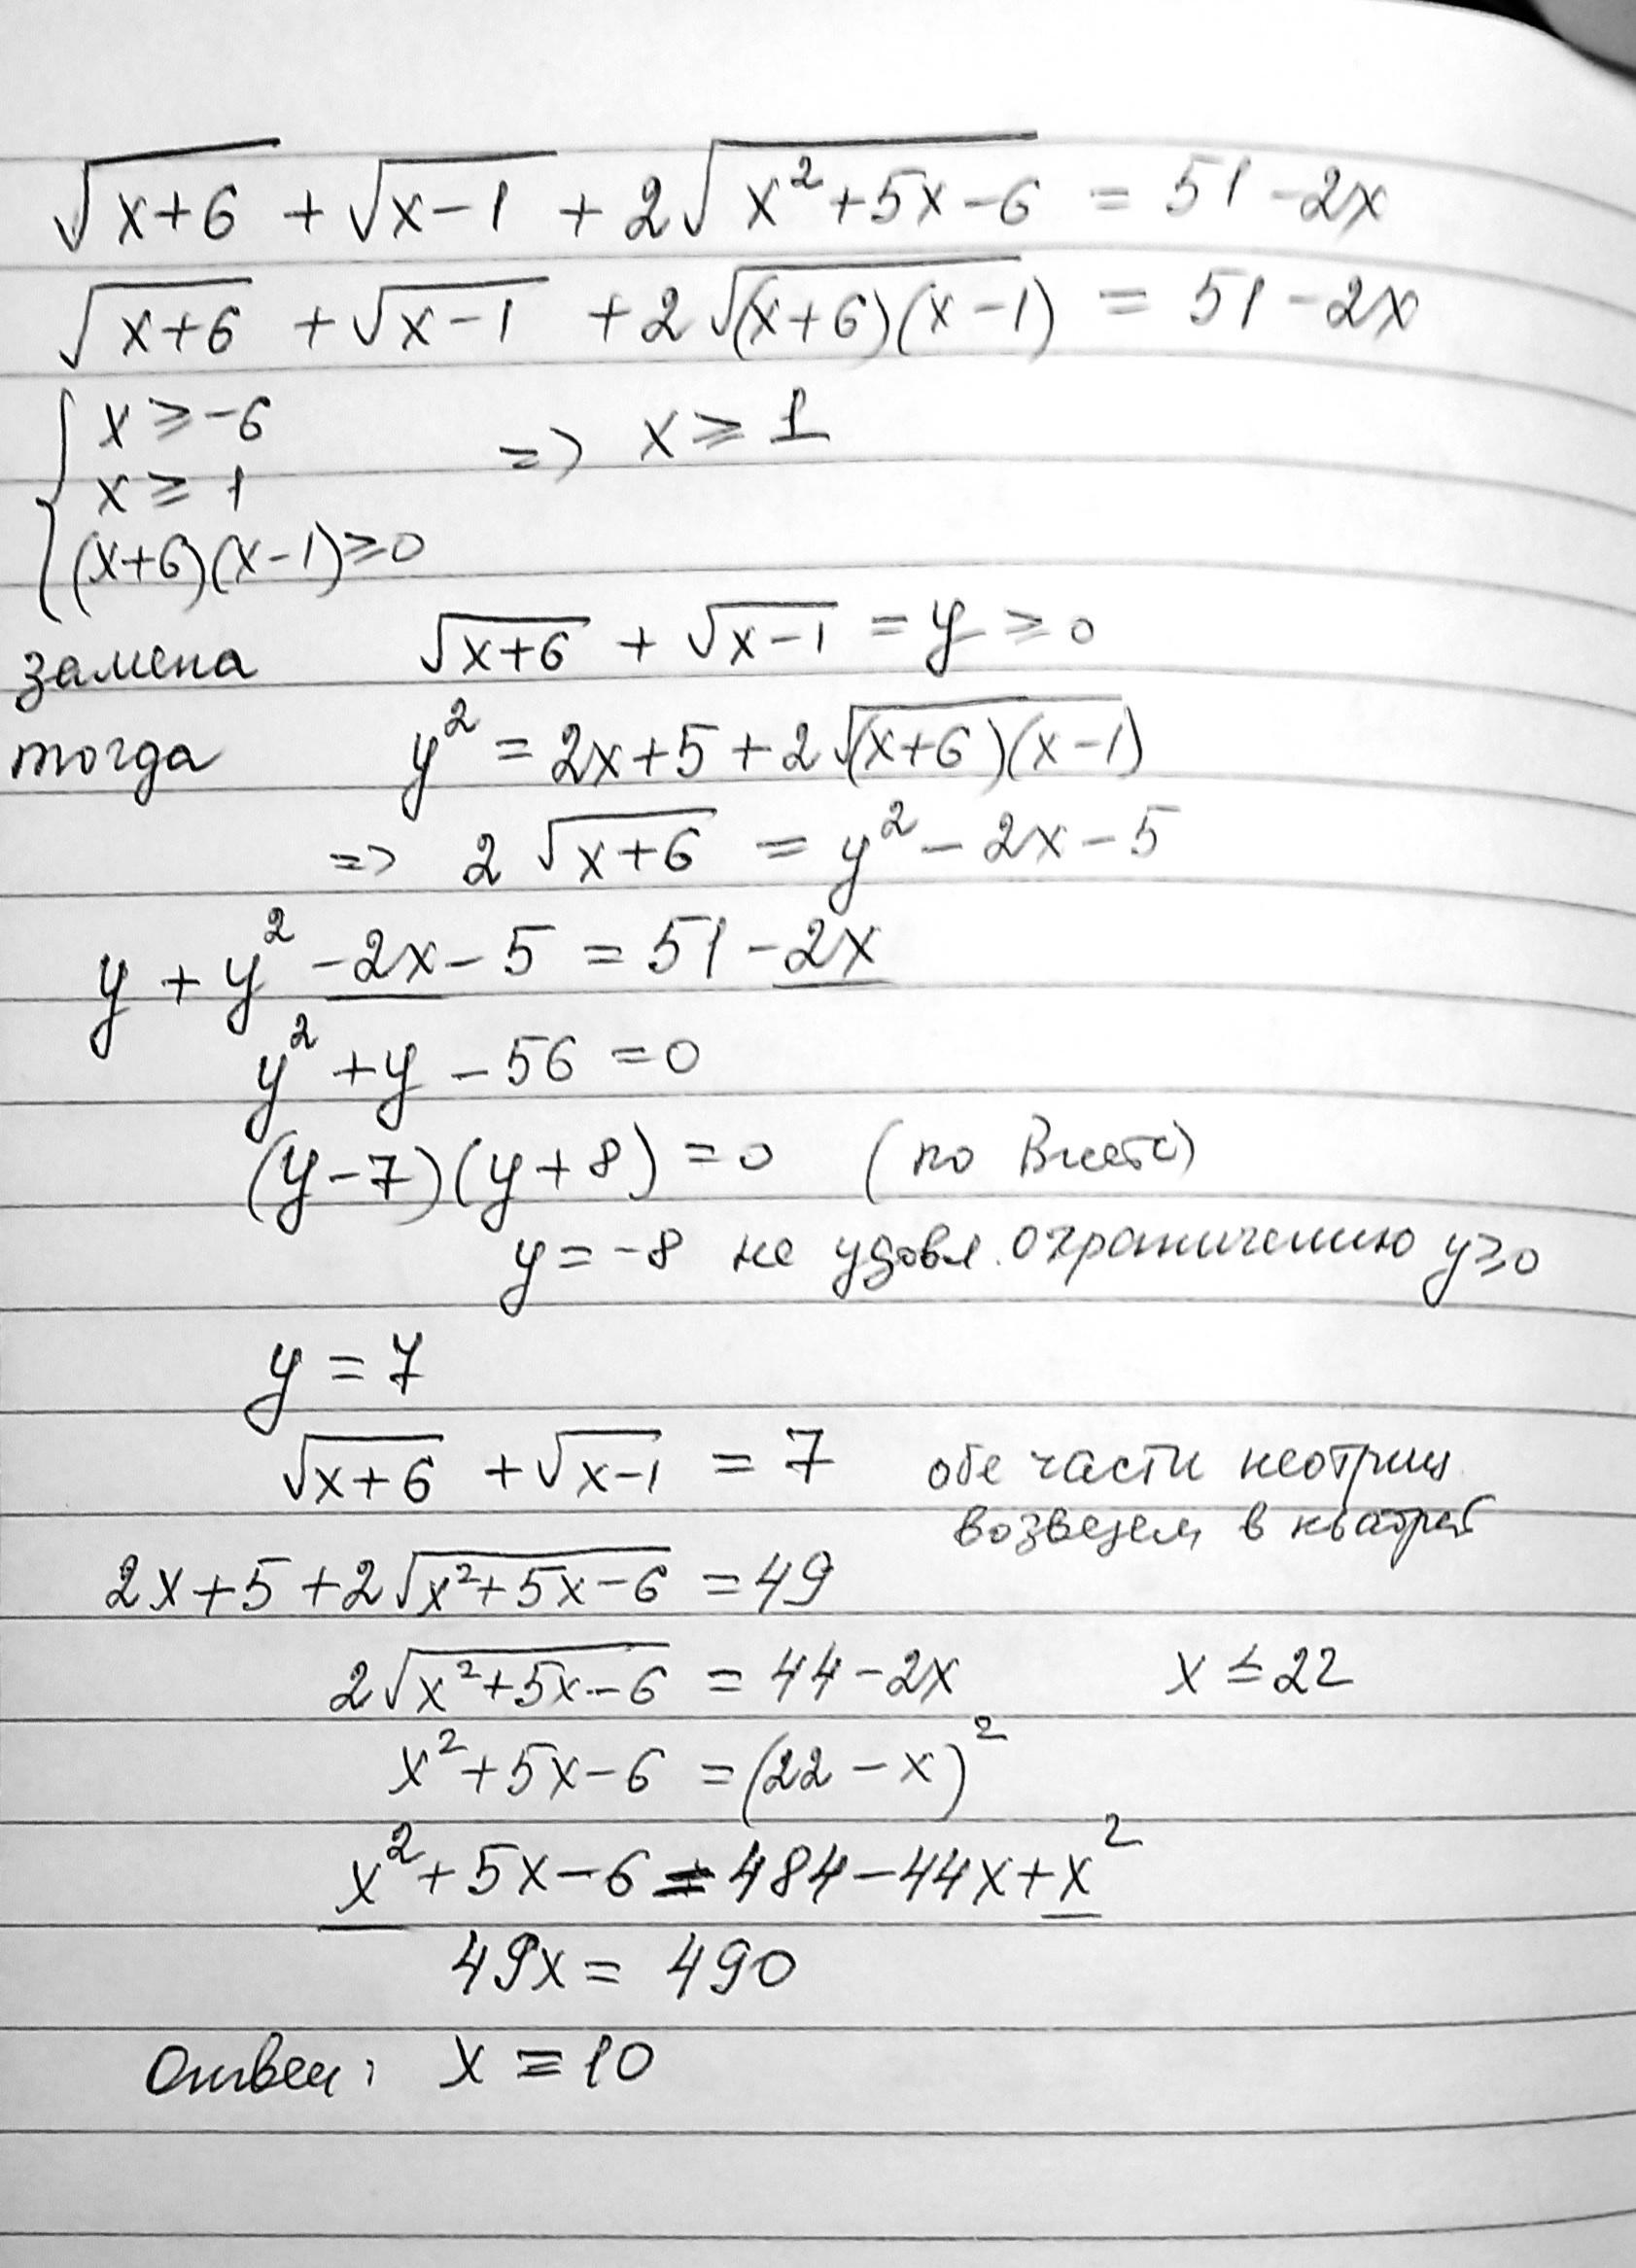 √(x+6) + √(x-1) + 2√(x²+5x-6) = 51-2x
√(x+6) + √(x-1) + 2√((x+6)(x-1)) = 51-2x
{ x ≥ -6
x ≥ 1 => x ≥ 1
(x+6)(x-1) ≥ 0
замена √(x+6) + √(x-1) = y ≥ 0
тогда y² = 2x+5+2√((x+6)(x-1))
=> 2√(x+6) = y² - 2x - 5
y + y² - 2x - 5 = 51 - 2x
y² + y - 56 = 0
(y-7)(y+8) = 0 (по Виета)
y = -8 не удовл. ограничению y ≥ 0
y = 7
√(x+6) + √(x-1) = 7 обе части неотриц.
возведем в квадрат
2x+5+2√(x²+5x-6) = 49
2√(x²+5x-6) = 44-2x x ≤ 22
x²+5x-6 = (22-x)²
x²+5x-6 = 484-44x+x²
49x = 490
Ответ: x = 10